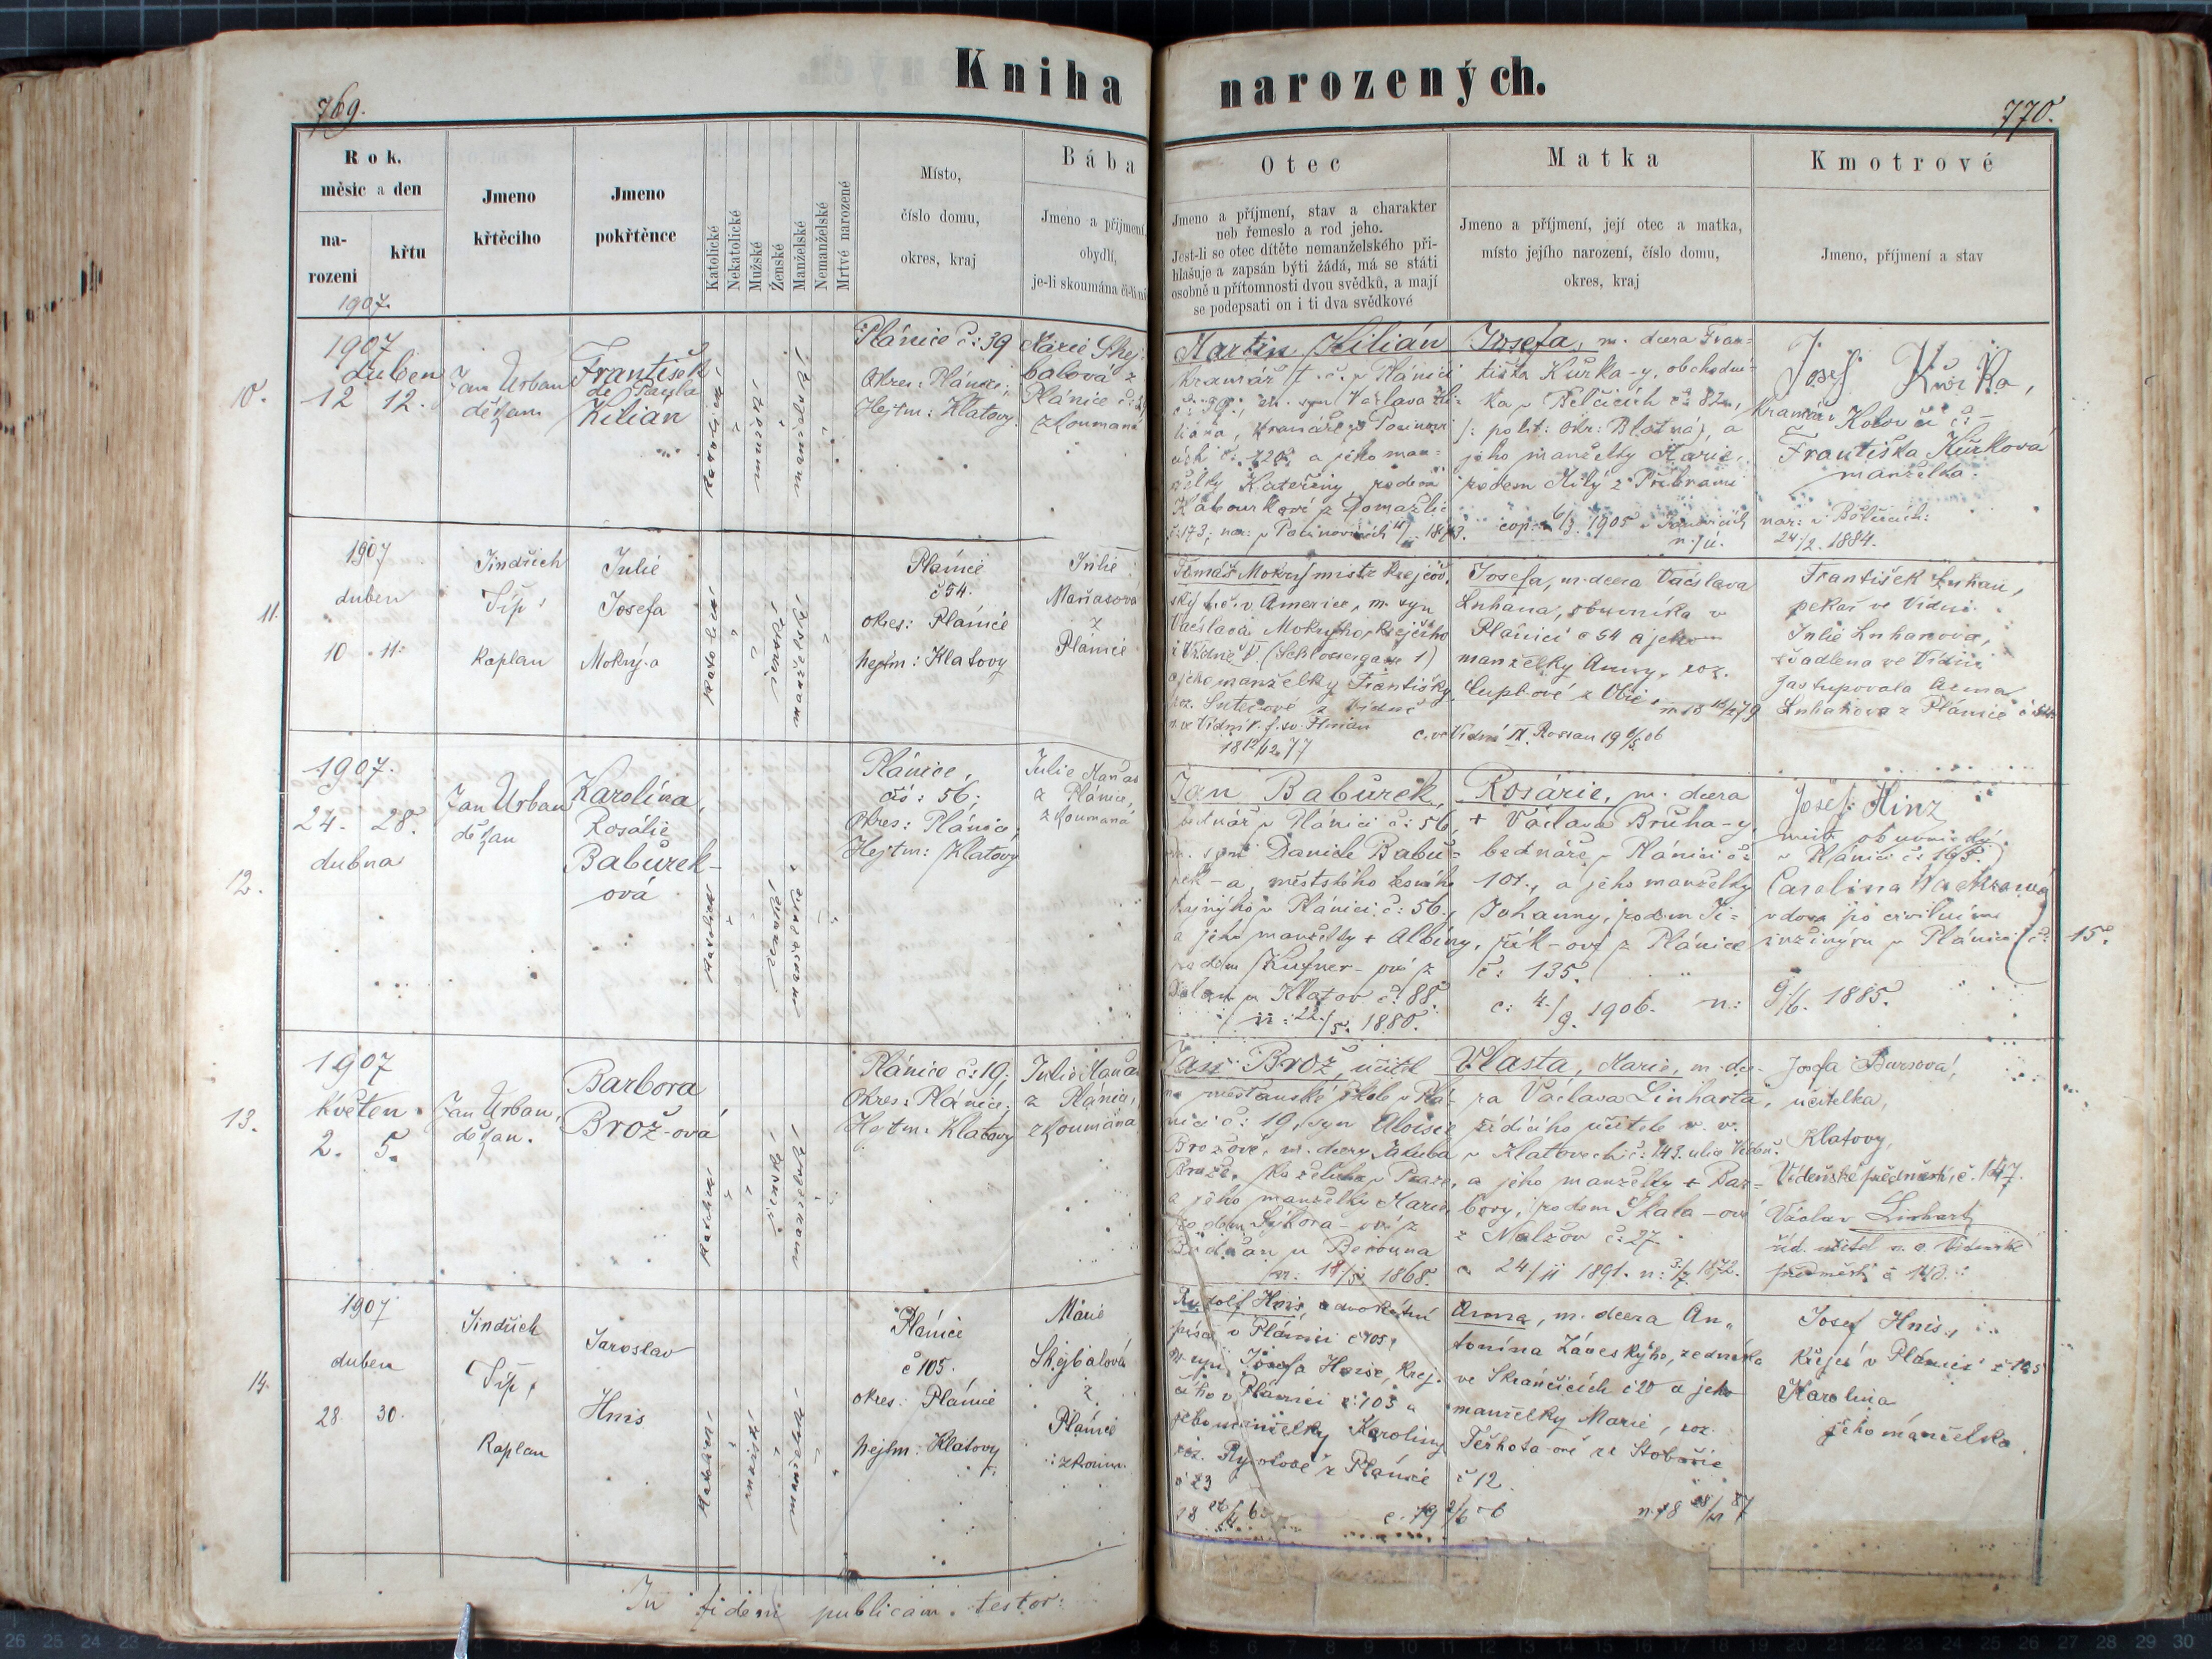 Kniha
narozených.
769.
770.
Rok.
měsíc a den
na-
rození
křtu
1907.
Jmeno
křtěciho
Jmeno
pokřtěnce
Katolické
Nekatolické
Mužské
Ženské
Manželské
Nemanželské
Mrtvé narozené
Místo,
číslo domu,
okres, kraj
Bába
Jmeno a příjmení,
obydlí,
je-li skoumána či-li ni
Otec
Jmeno a příjmení, stav a charakter
neb řemeslo a rod jeho.
Jest-li se otec dítěte nemanželského při-
hlašuje a zapsán býti žádá, má se státi
osobně u přítomnosti dvou svědků, a mají
se podepsati on i ti dva svědkové
Matka
Jmeno a příjmení, její otec a matka,
místo jejího narození, číslo domu,
okres, kraj
Kmotrové
Jmeno, příjmení a stav
10.
1907
duben
12 12.
Jan Urban
děkan
František
de Paula
Kilian
Plánice č: 39
Okres: Plánice;
Hejtm: Klatovy.
Marie Skej-
balová z
Plánice č:
zkoumaná
Martin Kilián
kramář t. č. v Plánici
č: 39., m. syn Václava Ki-
liána, kramáře v
a jeho man-
želky Kateřiny, rodem
z Domažlic
č: 173;
Josefa, m. dcera Fran-
tiška Kůrka-y, obchodní-
ka v Bělčicích č: 82.,
(: polit: okr: Blatná), a
jeho manželky Marie,
rodem Milý z Příbrami
cop: 6/3. 1905
Josef Kůrka,
kramář v Kolovči č: –
Františka Kůrková
manželka.
nar: v Bělčicích:
24./2. 1884.
11.
1907
duben
10 11.
Jindřich
Šíp
kaplan
Julie
Josefa
Mokrý-a
Plánice
č 54.
okres: Plánice
hejtm: Klatovy
Julie
Maňasová
z
Plánice
Tomáš Mokrý mistr krejčov-
ský t. č. v Americe, m. syn
Václava Mokrýho, krejčího
z Vídně V. (Schlossergasse 1)
a jeho manželky Františky
roz. z Vídně
n. ve Vídni V. f. sv. Florian
18 12/12 77
Josefa, m. dcera Václava
Luhana, obuvníka v
Plánici č 54 a jeho
manželky Anny, roz.
c. ve Vídni IX. Rossau 19 6/5 06
František Luhan,
pekař ve Vídni.
Julie Luhanova,
švadlena ve Vídni
zastupovala Anna
Luhanova z Plánice č 54.
12.
1907.
24. 28.
dubna
Jan Urban
děkan
Karolína,
Rosalie
Babůrek-
ová
Plánice,
čís: 56;
Okres: Plánice,
Hejtm: Klatovy
Julie Maňas
z Plánice,
zkoumaná
Jan Babůrek,
bednář v Plánici č: 56,
m. syn Daniele Babů-
rek-a, městského lesního
hajného v Plánici č: 56.,
a jeho manželky + Albíny,
rodem Kufner-ové z
u Klatov č: 88.
n: 22./5. 1880.
Rosárie, m. dcera
+ Václava Brůha-y,
bednáře v Plánici č:
101., a jeho manželky
Johanny, rodem Ji-
řík-ové z Plánice
č: 135.
c: 4./9. 1906. n:
Josef Hinz
mistr obuvnický
v Plánici č: 165.)
Carolina
vdova po civilním
inženýru v Plánici č: 15.
9./6. 1885.
13.
1907
květen
2. 5.
Jan Urban,
děkan.
Barbora
Brož-ová
Plánice č: 19;
Okres: Plánice;
Hejtm: Klatovy
Julie Maňas
z Plánice,
zkoumána
Jan Brož, učitel
na měšťanské škole v Plá-
nici č: 19, syn Aloisie
Brožové, m. dcery Jakuba
Brože, v Praze,
a jeho manželky Marie,
rodem Sýkora-ové z
u Berouna
n: 18/5 1868.
Vlasta, Marie, m. dce-
ra Václava Linharta,
řídícího učitele v. v.
v Klatovech č: 143. ulice Vídeň.
a jeho manželky + Bar-
bory, rodem Skala-ové
z Nalžov č: 27
c. 24./11 1891. n: 3/7. 1872.
Josefa Bursová,
učitelka,
Klatovy,
Vídeňské předměstí, č. 147.
Václav Linhart
říd. učitel v. v. Vídeňské
předměstí č 143.
14.
1907
duben
28. 30.
Jindřich
Šíp,
kaplan
Jaroslav
Hnis
Plánice
č 105.
okres: Plánice
hejtm: Klatovy
Marie
Skejbalová
z
Plánice
zkoum.
Rudolf Hnis, advokátní
písař v Plánici č 105,
m. syn Josefa Hnise, krej-
čího v Plánici č: 105 a
jeho manželky Karoliny
roz. z Plánice
č 23
Anna, m. dcera An-
tonína Záveského, zedníka
ve Skrančicích č 20 a jeho
manželky Marie, roz.
Těžhota-ové ze Stobořic
č 12.
Josef Hnis,
krejčí v Plánici č 105
Karolina
jeho manželka.
In fidem publicam testor: